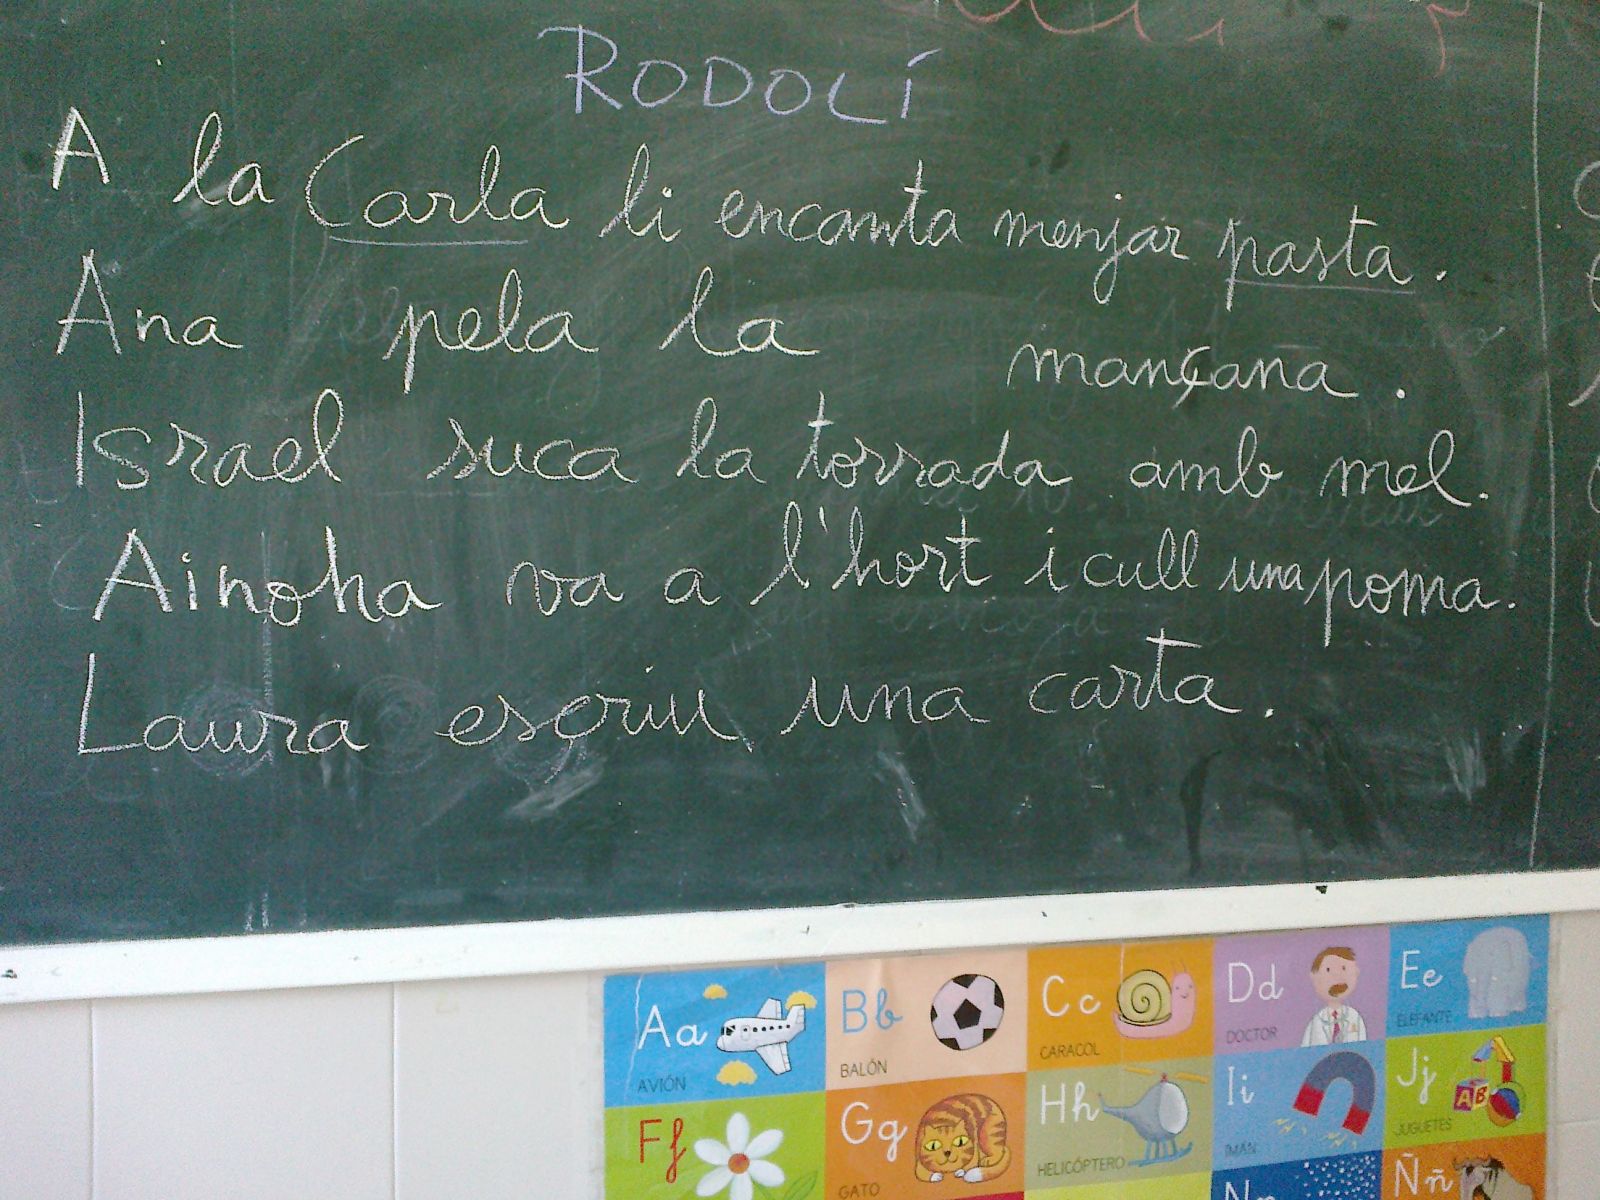 RODOLÍ
A la Carla li encanta menjar pasta.
Ana pela la mançana.
Israel suca la torrada amb mel.
Ainoha va a l'hort i cull una poma.
Laura escriu una carta.
Aa Bb Cc Dd Ee
AVIÓN BALÓN CARACOL DOCTOR ELEFANTE
Ff Gg Hh Ii Jj
GATO HELICÓPTERO IMÁN JUGUETES
Ññ